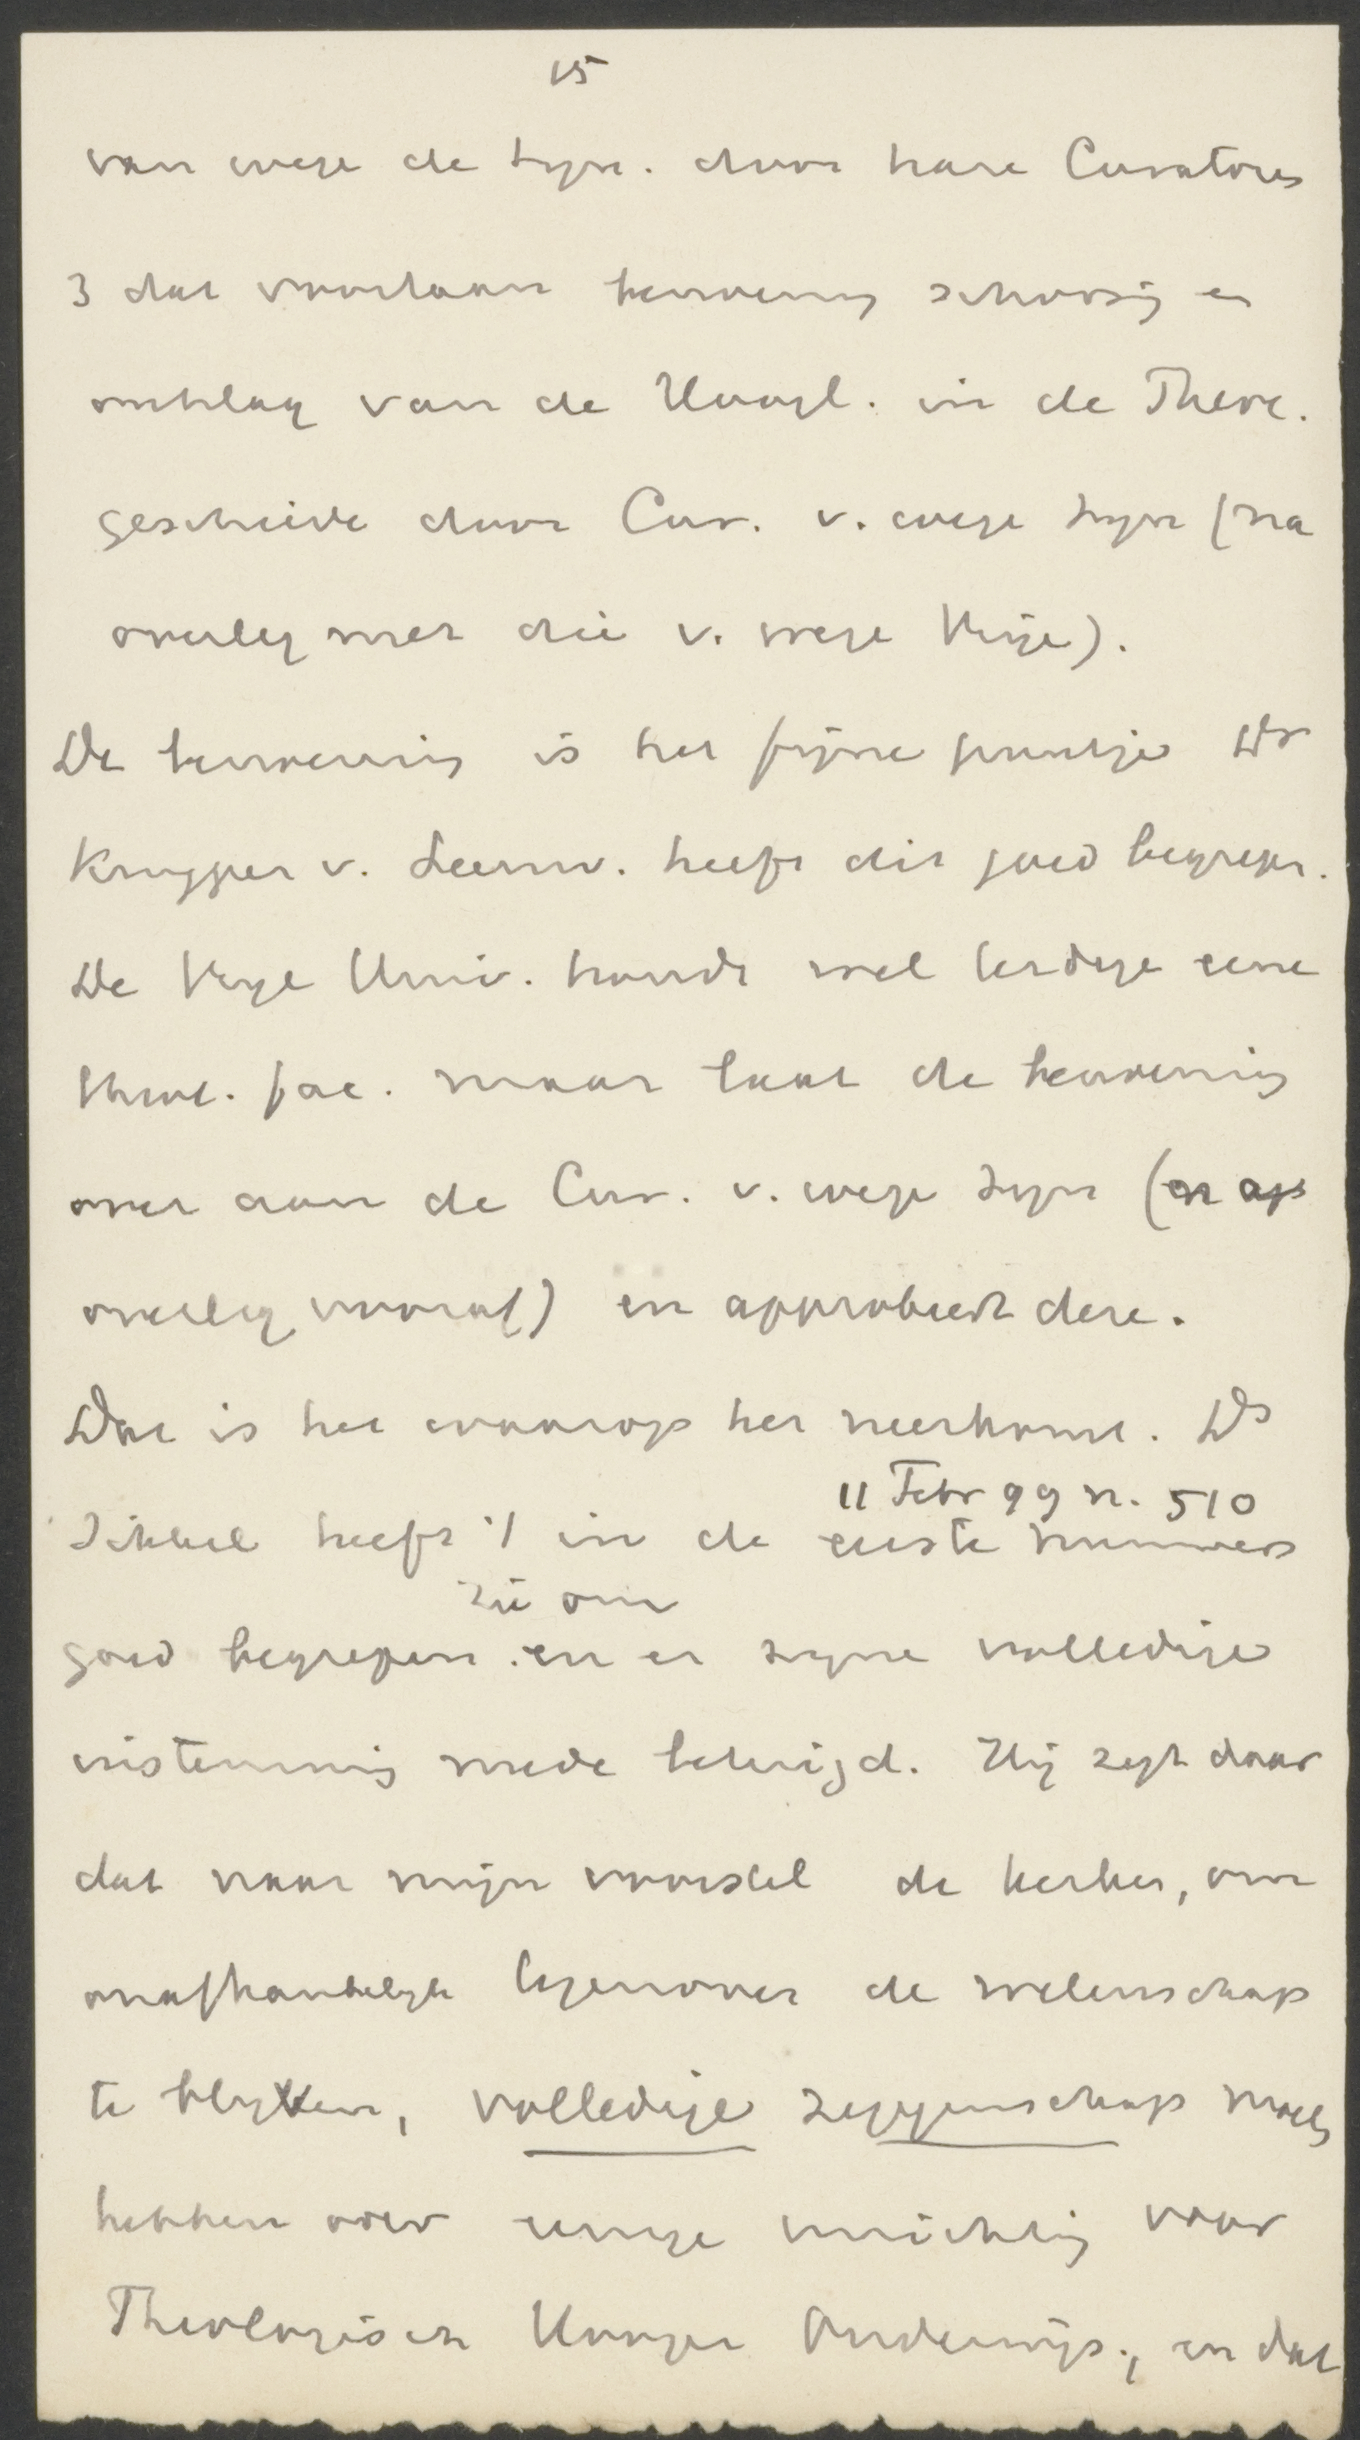 15
van wege de Syn. door hare Curatores
3 dat voortaan benoeming schorsing en
ontslag van de Hoogl. in de Theol.
geschiede door Cur. v. wege Syn (na
overleg met die v. wege Vrije).
De benoeming is het fijne puntje Dr
Kuyper v. Leeuw. heeft dit goed begrepen.
De Vrije Univ. houdt wel terdege eene
theol. fac. maar laat de benoeming
over aan de Cur. v. wege Syn (en op
overleg vooraf) en approbeert deze.
Dat is het waarop het neerkomt. Ds
11 Febr 99 n. 510
Sikkel heeft 't in de eerste nummers
zie om
goed begrepen. en er zijne volledige
instemming mede betuigd. Hij zegt daar
dat naar mijn voorstel de kerken, om
onafhankelijk tegenover de wetenschap
te blijken, volledige zeggenschap moeten
hebben over eenige inrichting voor
Theologisch Hooger Onderwijs., en dat